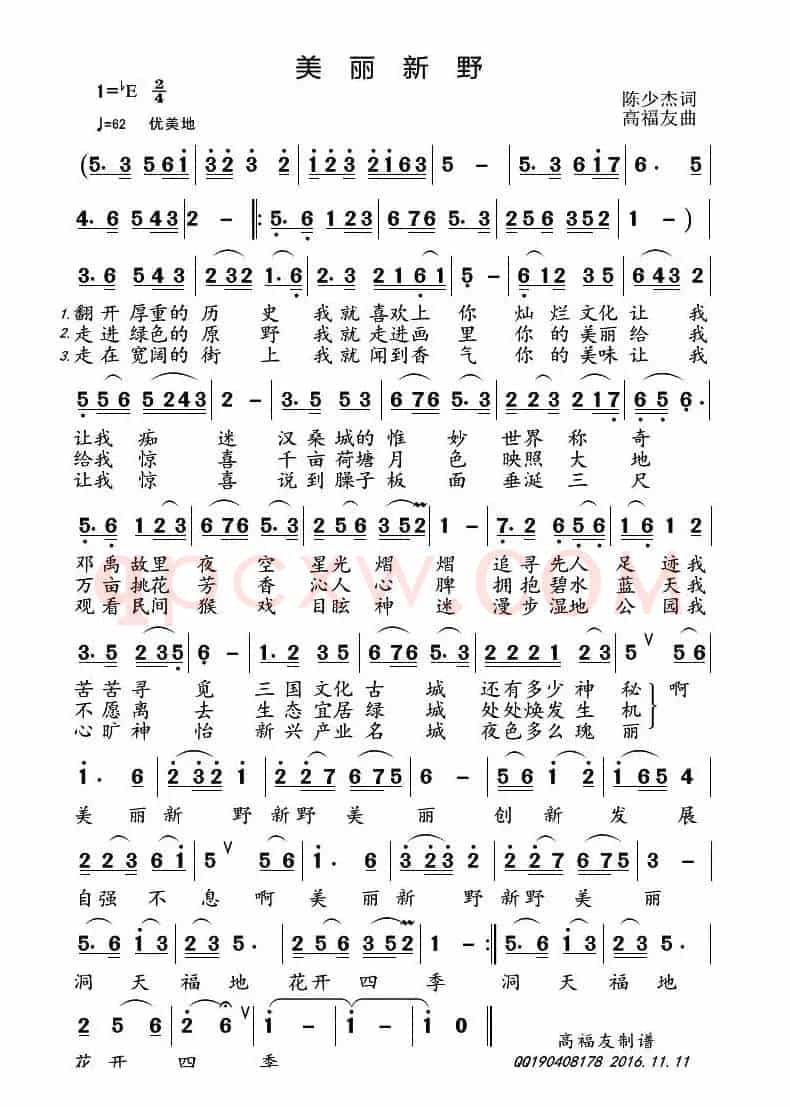 美丽新野
1=♭E 2/4
陈少杰词
♩=62 优美地
高福友曲
(5. 3 5 6 1 | 3 2 3 2 | 1 2 3 2 1 6 3 | 5 - | 5. 3 6 1 7 | 6. 5 |
4. 6 5 4 3 | 2 - ‖: 5. 6 1 2 3 | 6 7 6 5. 3 | 2 5 6 3 5 2 | 1 - ) |
3. 6 5 4 3 | 2 3 2 1. 6 | 2. 3 2 1 6 1 | 5 - | 6 1 2 3 5 | 6 4 3 2 |
1. 翻开厚重的历史我就喜欢上你灿烂文化让我
2. 走进绿色的原野我就走进画里你的美丽给我
3. 走在宽阔的街上我就闻到香气你的美味让我
5 5 6 5 2 4 3 | 2 - | 3. 5 5 3 | 6 7 6 5. 3 | 2 2 3 2 1 7 | 6 5 6. |
让我痴迷汉桑城的惟妙世界称奇
给我惊喜千亩荷塘月色映照大地
让我惊喜说到臊子板面垂涎三尺
5. 6 1 2 3 | 6 7 6 5. 3 | 2 5 6 3 5 2 | 1 - | 7. 2 6 5 6 | 1 6 1 2 |
邓禹故里夜空星光熠熠追寻先人足迹我
万亩挑花芳香沁人心脾拥抱碧水蓝天我
观看民间猴戏目眩神迷漫步湿地公园我
3. 5 2 3 5 | 6 - | 1. 2 3 5 | 6 7 6 5. 3 | 2 2 2 1 2 3 | 5 ∨ 5 6 |
苦苦寻觅三国文化古城还有多少神秘啊
不愿离去生态宜居绿城处处焕发生机
心旷神怡新兴产业名城夜色多么瑰丽
1. 6 | 2 3 2 1 | 2 2 7 6 7 5 | 6 - | 5 6 1 2 | 1 6 5 4 |
美丽新野新野美丽创新发展
2 2 3 6 1 | 5 ∨ 5 6 | 1. 6 | 3 2 3 2 | 2 2 7 6 7 8 5 | 3 - |
自强不息啊美丽新野新野美丽
5. 6 1 3 | 2 3 5. | 2 5 6 3 5 2 | 1 - :‖ 5. 6 1 3 | 2 3 5. |
洞天福地花开四季洞天福地
2 5 6 | 2 6 ∨ | 1 - | 1 - | 1 0 ‖
高福友制谱
花开四季
QQ190408178 2016.11.11
qpcxw.COM